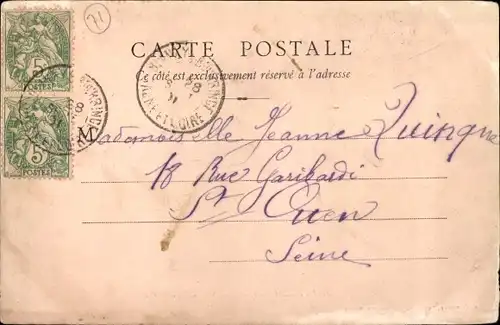 71
CARTE POSTALE
Ce côté est exclusivement réservé à l'adresse
5
POSTES
5
POSTES
SAÔNE-ET-LOIRE
Mademoiselle Jeanne Quinque
18 Rue Garibardi
St Ouen
Seine